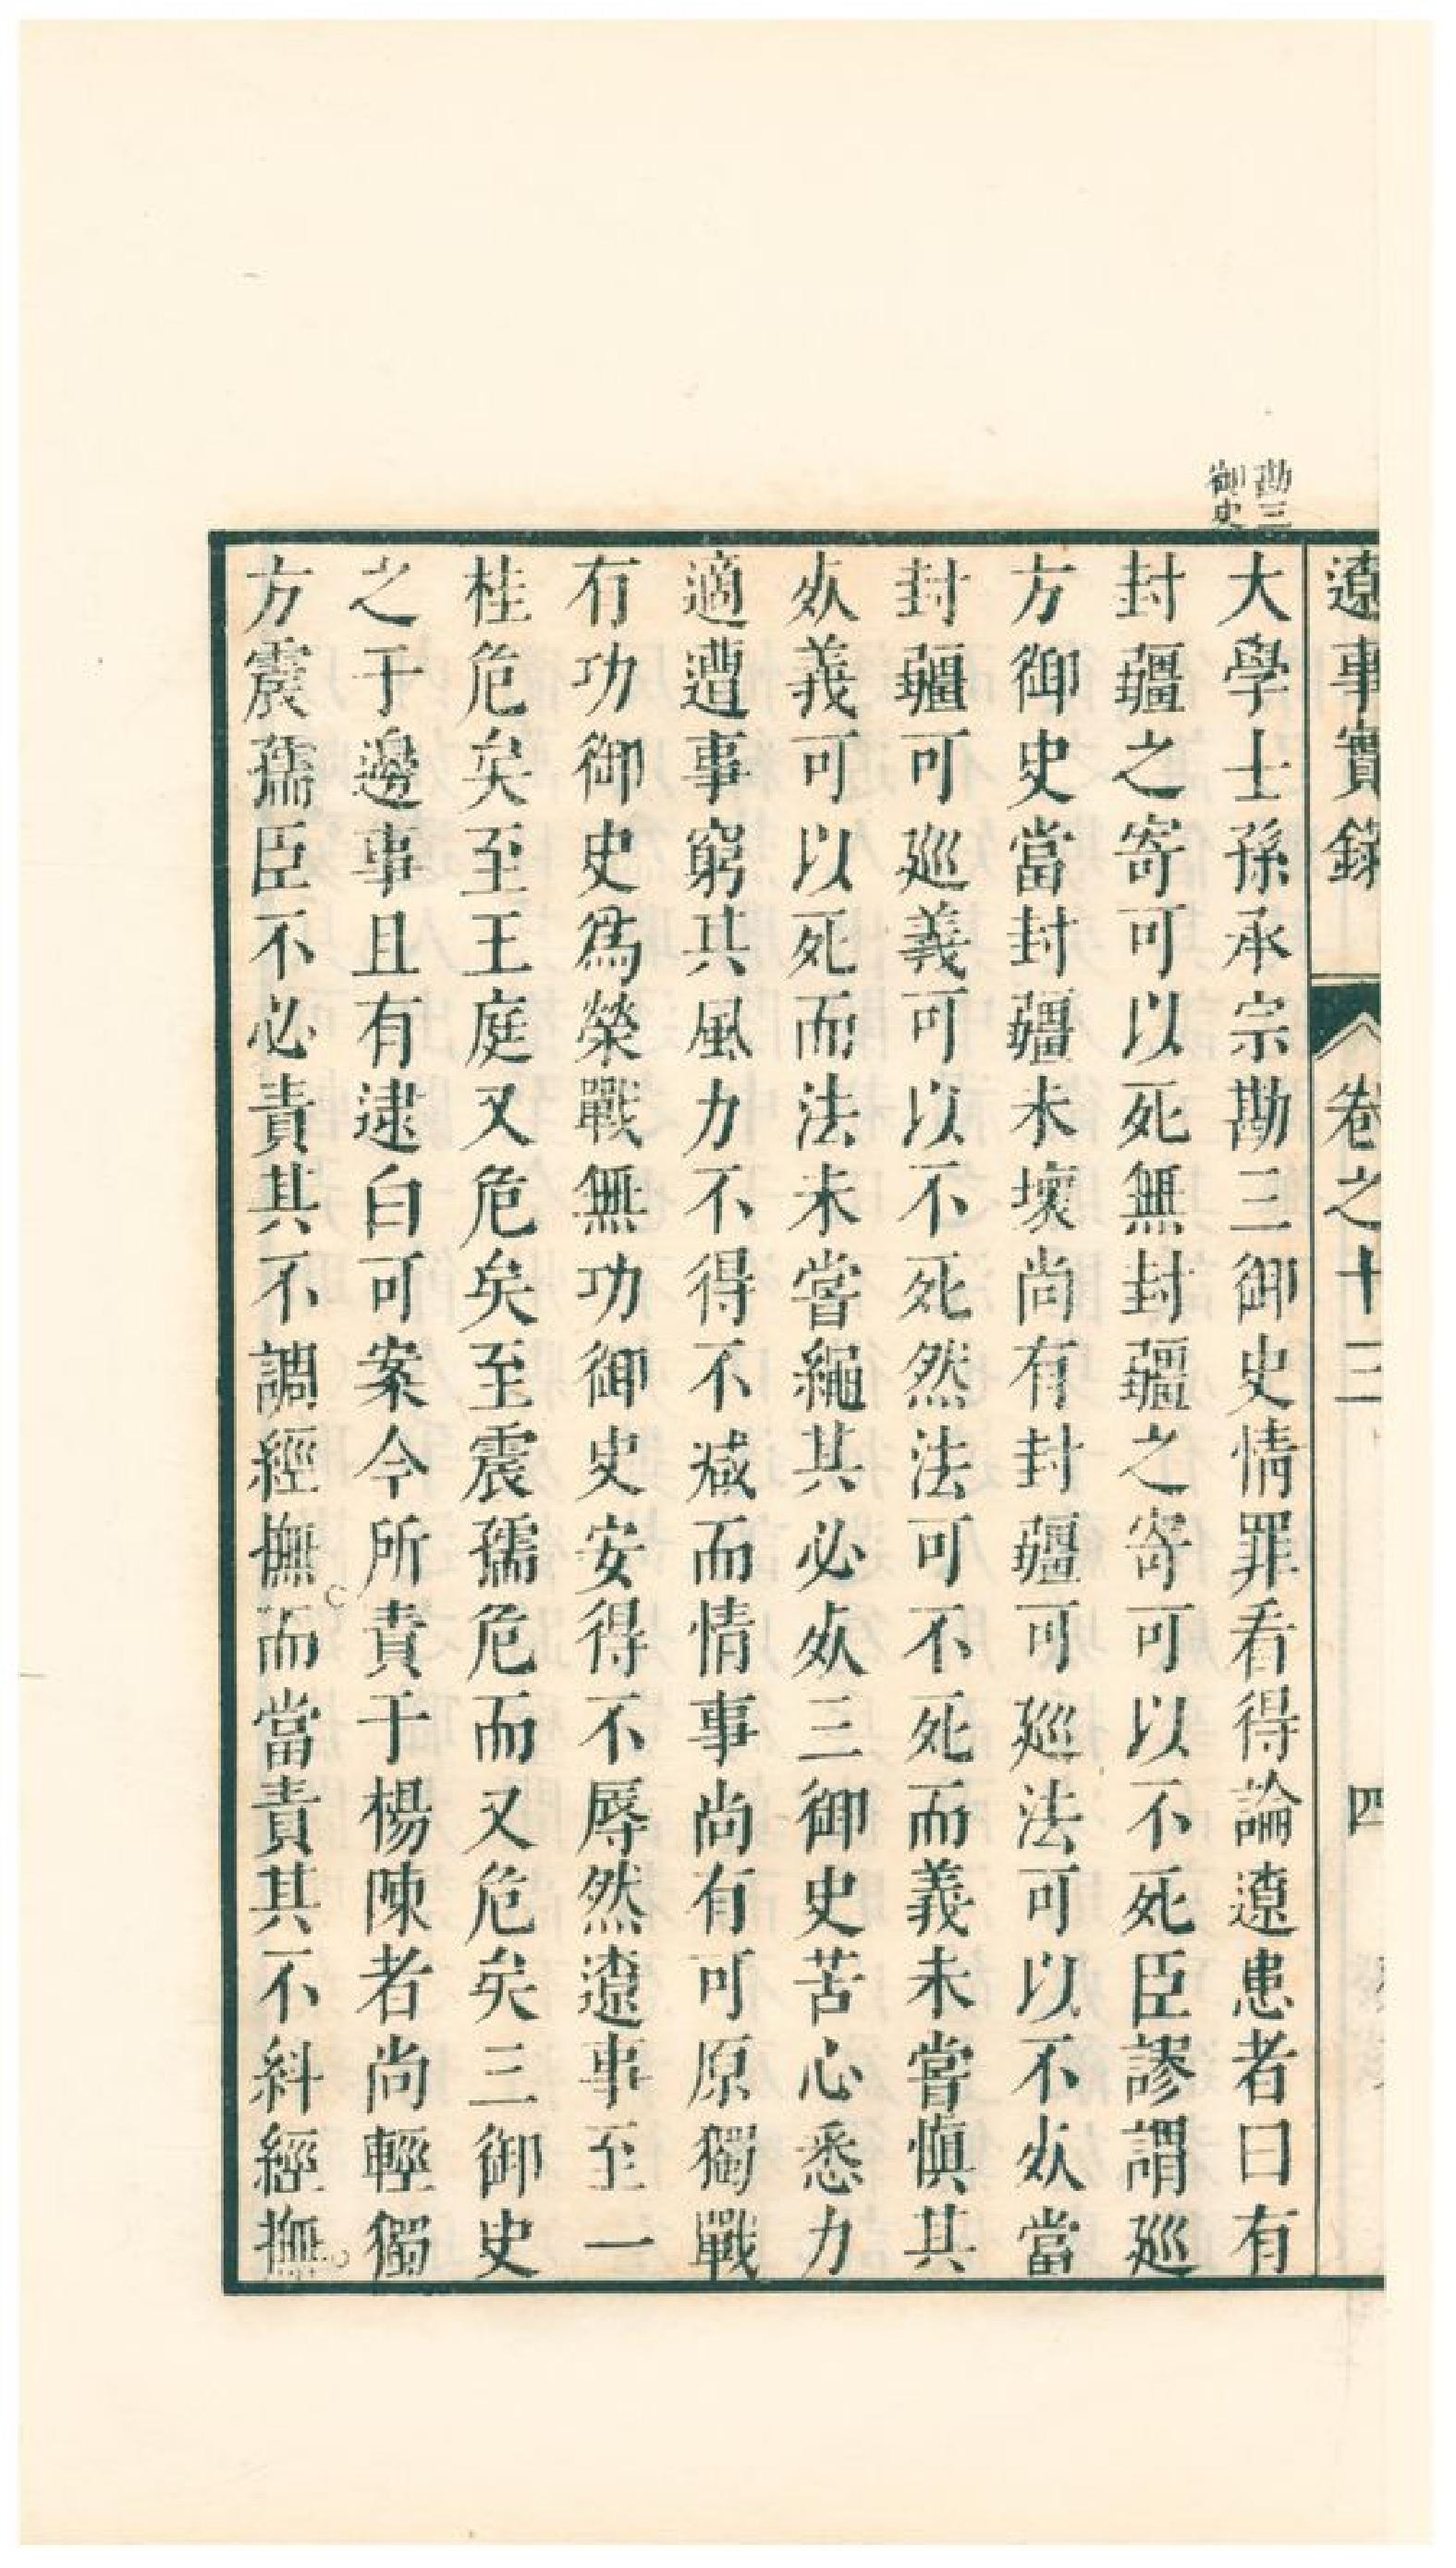 遼事實錄 卷之十三 四
勘三
御史
大學士孫承宗勘三御史情罪看得論遼患者曰有
封疆之寄可以死無封疆之寄可以不死臣謬謂廵
方御史當封疆未壞尚有封疆可廵法可以不死當
封疆可廵義可以不死然法可不死而義未嘗慎其
死義可以死而法未嘗繩其必死三御史苦心悉力
適遭事窮其風力不得不臧而情事尚有可原獨戰
有功御史爲榮戰無功御史安得不辱然遼事至一
桂危矣至王庭又危矣至震孺危而又危矣三御史
之于邊事且有逮白可案今所責于楊陳者尚輕獨
方震孺臣不必責其不調經撫而當責其不糾經撫